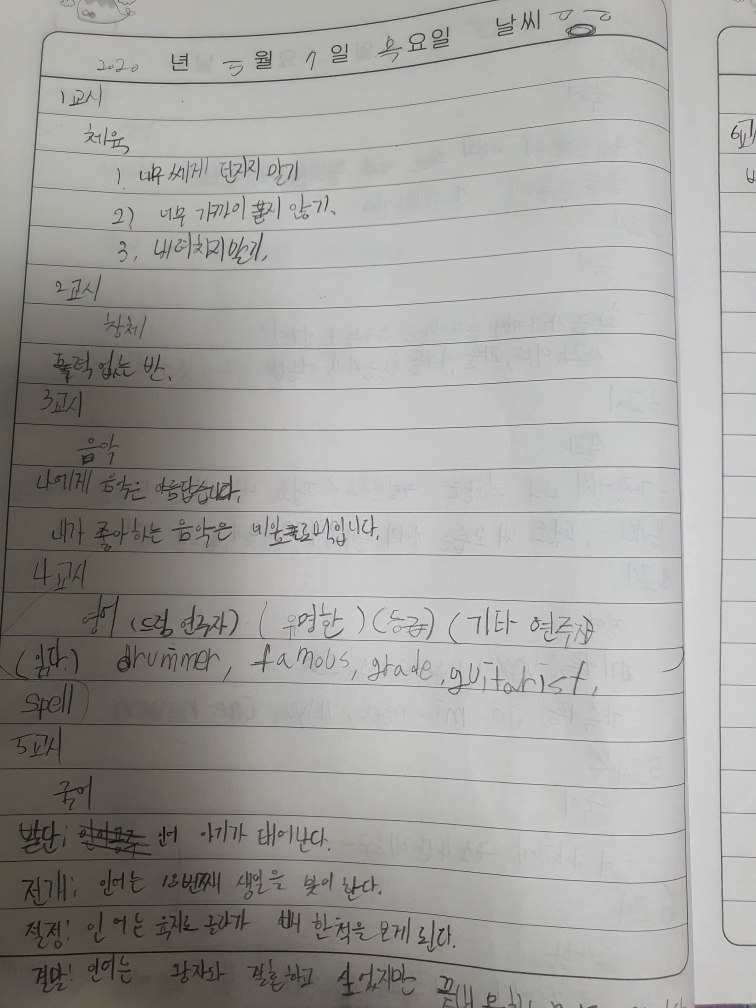 2020 년 5 월 7 일 목요일 날씨
1교시
체육
1. 너무 쎄게 던지지 말기
2) 너무 가까이 붙지 않기.
3. 내려치지말기.
2교시
창체
폭력 없는 반.
3교시
음악
나에게 음악은 아름답습니다.
내가 좋아하는 음악은 입니다.
4교시
영어 (드럼 연주자) (유명한) (등급) (기타 연주자)
(읽다.) drummer, famous, grade, guitarist,
spell
5교시
국어
발단; 인어 아기가 태어난다.
전개; 인어는 번째 생일을 맞이한다.
절정! 인어는 육지로 올라가 배 한척을 보게 된다.
결말! 인어는 왕자와 결혼하고 싶었지만
6교시